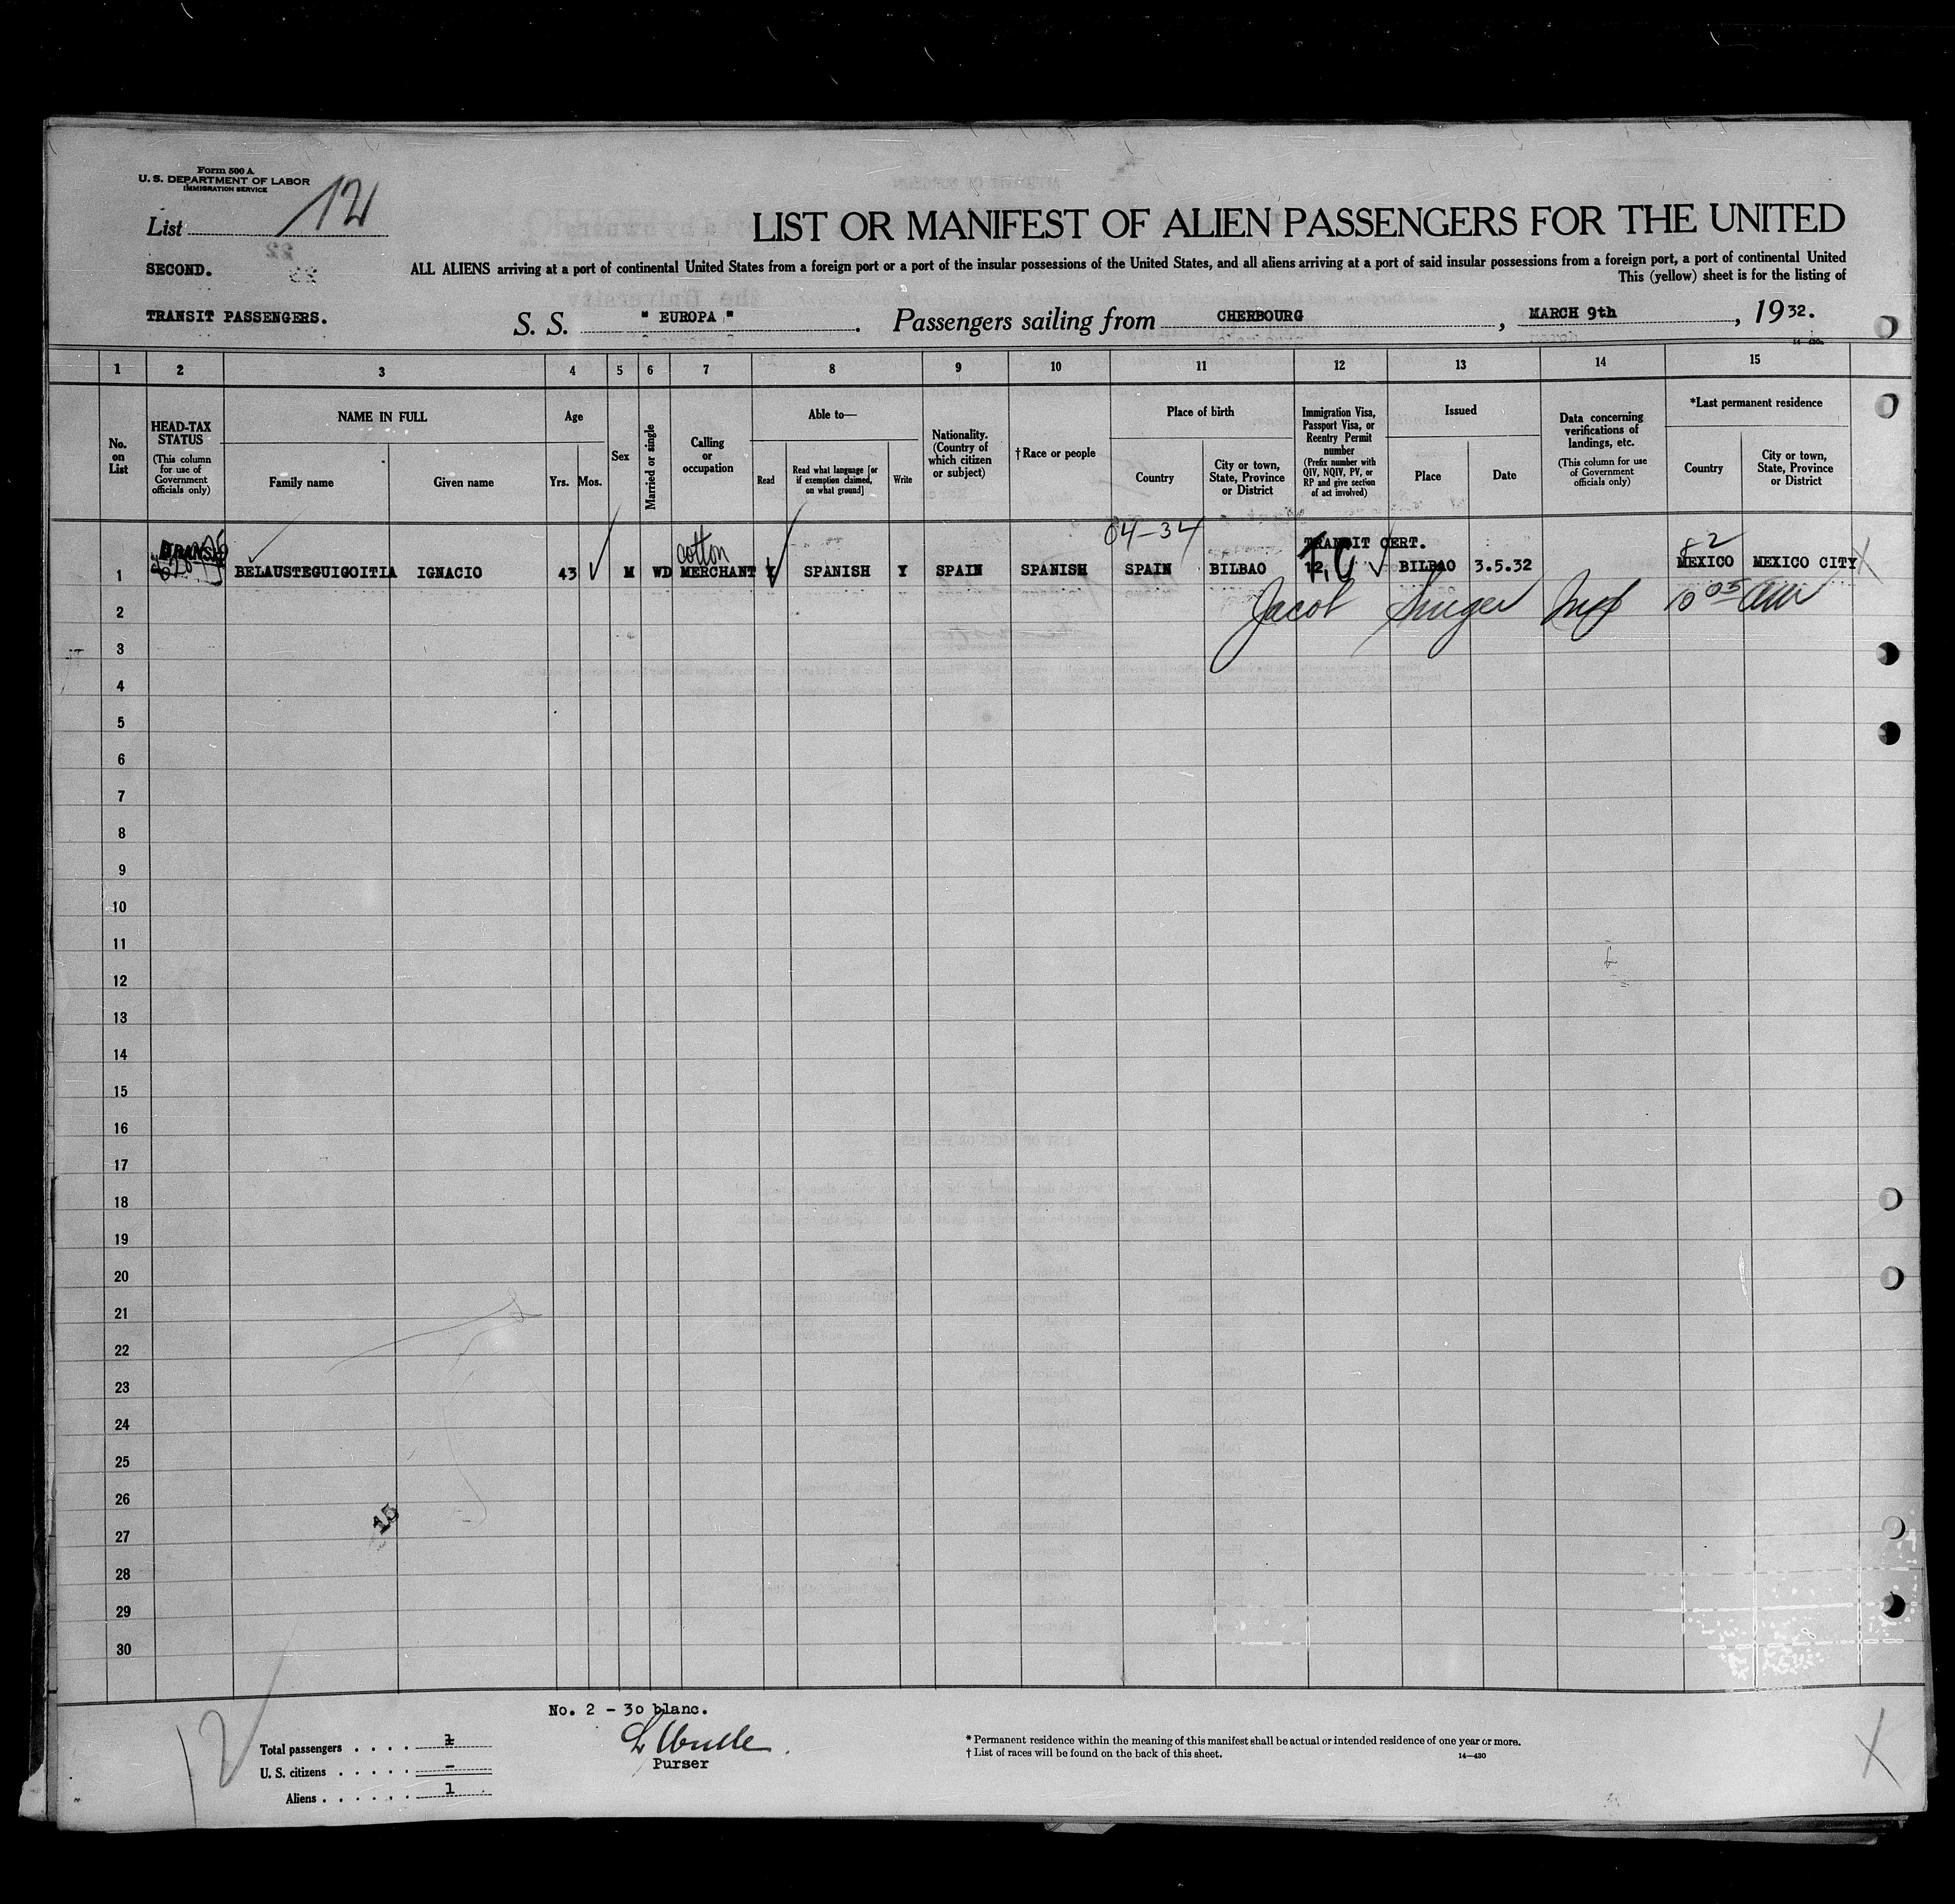 Form 500 A
U. S. DEPARTMENT OF LABOR
IMMIGRATION SERVICE
List 12
LIST OR MANIFEST OF ALIEN PASSENGERS FOR THE UNITED
SECOND.
ALL ALIENS arriving at a port of continental United States from a foreign port or a port of the insular possessions of the United States, and all aliens arriving at a port of said insular possessions from a foreign port, a port of continental United
This (yellow) sheet is for the listing of
TRANSIT PASSENGERS.
S. S. " EUROPA " . Passengers sailing from CHERBOURG , MARCH 9th , 1932.
1 2 3 4 5 6 7 8 9 10 11 12 13 14 15
No. on List
HEAD-TAX STATUS (This column for use of Government officials only)
NAME IN FULL
Family name
Given name
Age
Yrs. Mos.
Sex
Married or single
Calling or occupation
Able to—
Read
Read what language [or if exemption claimed, on what ground]
Write
Nationality. (Country of which citizen or subject)
† Race or people
Place of birth
Country
City or town, State, Province or District
Immigration Visa, Passport Visa, or Reentry Permit number (Prefix number with QIV, NQIV, PV, or RP and give section of act involved)
Issued
Place
Date
Data concerning verifications of landings, etc. (This column for use of Government officials only)
*Last permanent residence
Country
City or town, State, Province or District
04-34
TRANSIT CERT.
cotton
1 BELAUSTEGUIGOITIA IGNACIO 43 M WD MERCHANT Y SPANISH Y SPAIN SPANISH SPAIN BILBAO 12. T.C BILBAO 3.5.32 MEXICO MEXICO CITY
2 Jacob Singer Insp 10 05 am
3
4
5
6
7
8
9
10
11
12
13
14
15
16
17
18
19
20
21
22
23
24
25
26
15
27
28
29
30
No. 2 - 30 blanc.
Purser
Total passengers . . . . 1
U. S. citizens . . . . . -
Aliens . . . . . . 1
12
* Permanent residence within the meaning of this manifest shall be actual or intended residence of one year or more.
† List of races will be found on the back of this sheet.
14—430